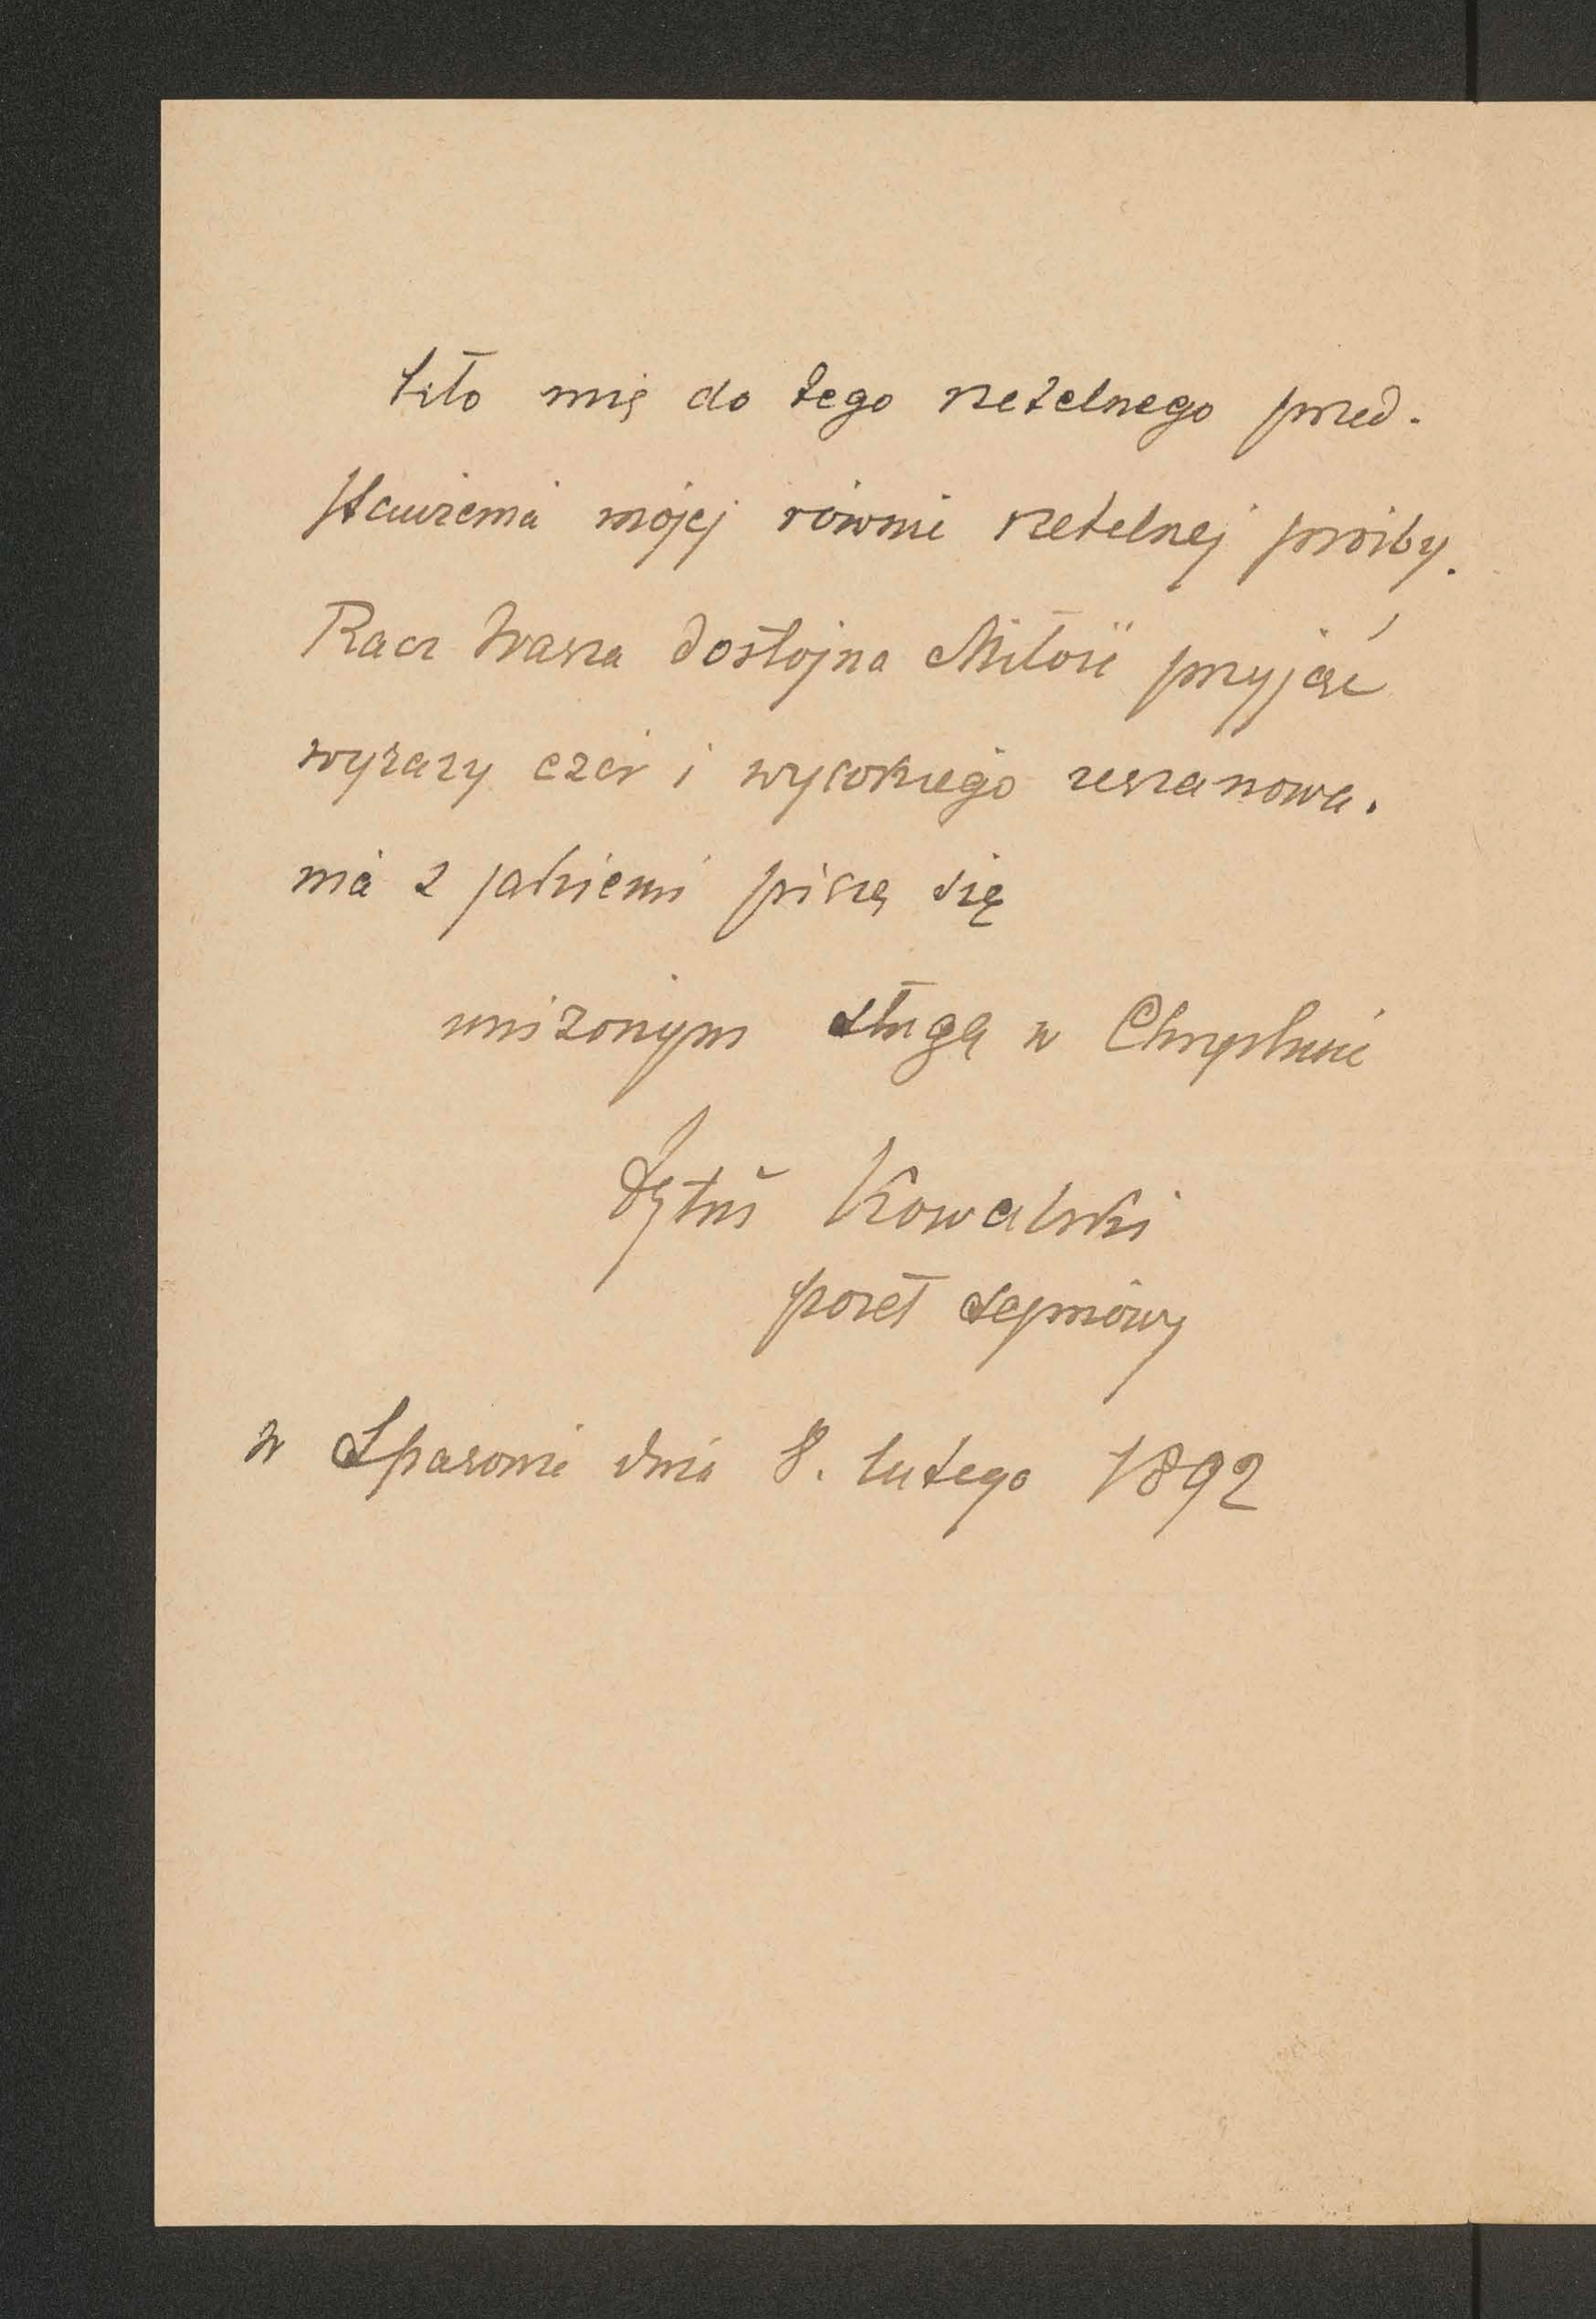 kło mię do tego rzetelnego przed-
stawienia mojej równie rzetelnej prośby.
Racz Wasza Dostojna Miłość przyjąć
wyrazy czci i wysokiego uszanowa-
nia z jakiemi piszę się
uniżonym sługą w Chrystusie
Tytus Kowalski
poseł sejmowy
w Spasowie dnia 8. lutego 1892